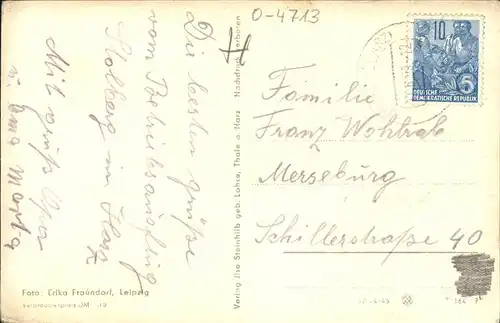 O-4713
Die besten Grüße
vom Betriebsausflug
Stolberg im Harz
Mit Gruß Opa
u. Oma Marta
Foto: Erika Fraundorf, Leipzig
Verlag Ilse Steinhilb geb. Lohse, Thale a Harz Nachdruck verboten
10
5
DEUTSCHE
DEMOKRATISCHE REPUBLIK
Familie
Franz Wohtrab
Merseburg
Schillerstraße 40